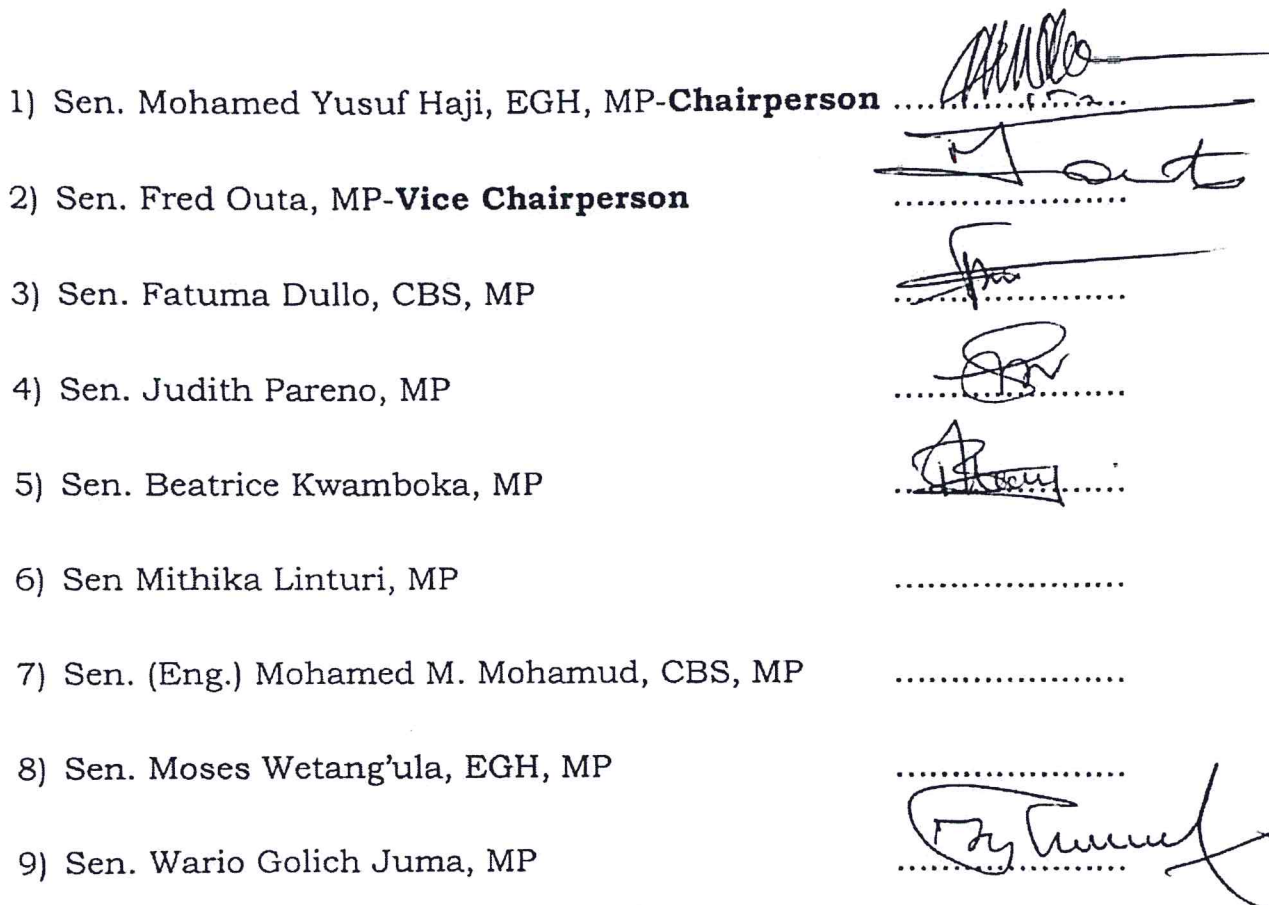 1) Sen. Mohamed Yusuf Haji, EGH, MP-Chairperson .....................
2) Sen. Fred Outa, MP-Vice Chairperson .....................
3) Sen. Fatuma Dullo, CBS, MP .....................
4) Sen. Judith Pareno, MP .....................
5) Sen. Beatrice Kwamboka, MP .....................
6) Sen Mithika Linturi, MP .....................
7) Sen. (Eng.) Mohamed M. Mohamud, CBS, MP .....................
8) Sen. Moses Wetang'ula, EGH, MP .....................
9) Sen. Wario Golich Juma, MP .....................